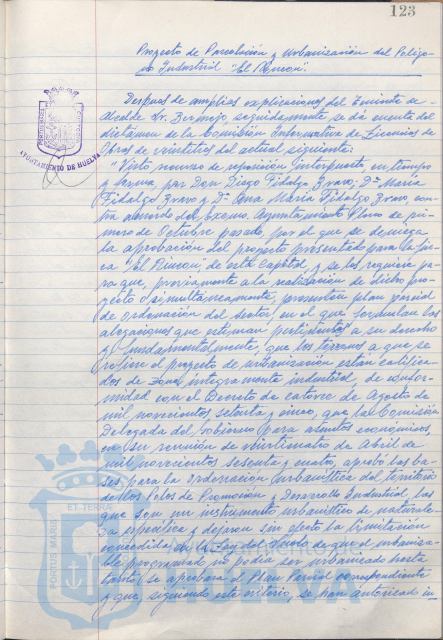 123
Proyecto de Parcelación y urbanización del Polígo-
no Industrial "El Rincón".
Despues de amplias explicaciones del Teniente de
Alcalde Sr. Bermejo, seguidamente se dá cuenta del
dictamen de la Comisión Informativa de Licencias de
Obras de veintitres del actual siguiente:
"Visto recurso de reposición interpuesto en tiempo
y forma por Don Diego Fidalgo Bravo, Dª María
Fidalgo Bravo y Dª Ana María Fidalgo Bravo con-
tra acuerdo del Excmo. Ayuntamiento Pleno de pri-
mero de Octubre pasado, por el que se deniega
la aprobación del proyecto presentado para la fin-
ca "El Rincón", de esta Capital, y se les requiere pa-
ra que, previamente a la realización de dicho pro-
yecto o simultáneamente, presenten plan parcial
de ordenación del sector, en el que formulan las
alegaciones que estiman pertinentes a su derecho
y fundamentalmente, que los terrenos a que se
refiere el proyecto de urbanización están califica-
dos de zona integramente industrial, de confor-
midad con el Decreto de catorce de Agosto de
mil novecientos setenta y cinco, que la Comisión
Delegada del Gobierno para asuntos económicos
en su reunión de veintinueve de Abril de
mil novecientos sesenta y cuatro, aprobó las ba-
ses para la ordenación urbanística del territorio
de los Polos de Promoción y Desarrollo Industrial, las
que son un instrumento urbanístico de naturale-
za específica y dejaron sin efecto la limitación
concedida en la Ley del Suelo de que el urbaniza-
ble programado no podía ser urbanizado hasta
tanto se aprobara el Plan Parcial correspondiente
y que siguiendo este criterio, se han autorizado in-
AYUNTAMIENTO DE HUELVA
PORTUS MARIS
ET TERRAE
Ayuntamiento de
HUELVA